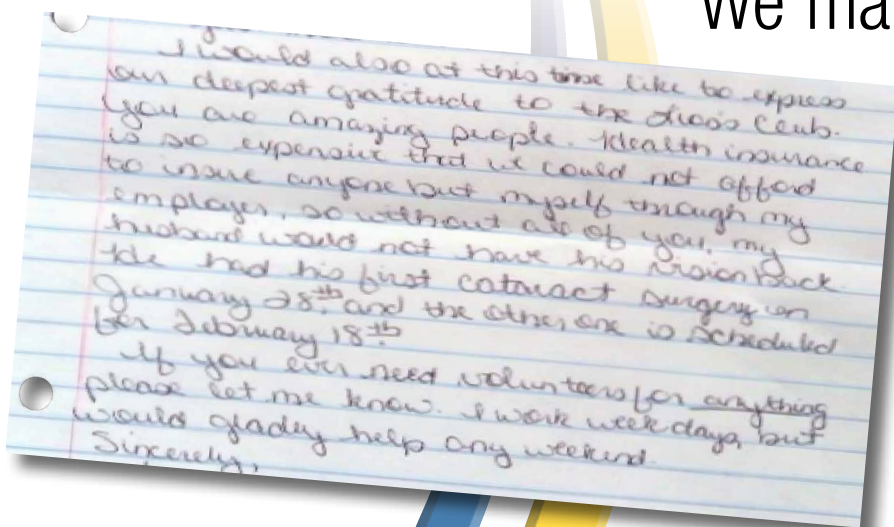 We ma
I would also at this time like to express
our deepest gratitude to the Lion's Club.
You are amazing people. Health insurance
is so expensive that we could not afford
to insure anyone but myself through my
employer, so without all of you, my
husband would not have his vision back.
He had his first cataract surgery on
January 28th and the other one is scheduled
for February 18th.
If you ever need volunteers for anything
please let me know. I work weekdays, but
would gladly help any weekend.
Sincerely,